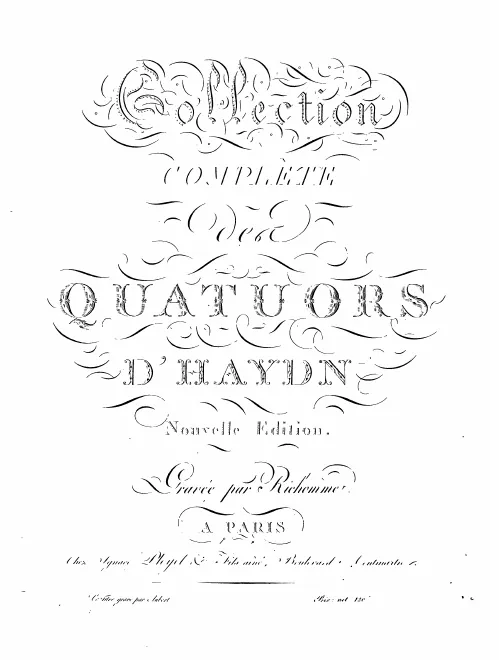 Collection
COMPLÈTE
des
QUATUORS
D'HAYDN
Nouvelle Edition.
Gravée par Richomme.
A PARIS
Chez Ignace Pleyel & Fils ainé, Boulevard
Ce titre gravé par Aubert
Prix: net 120